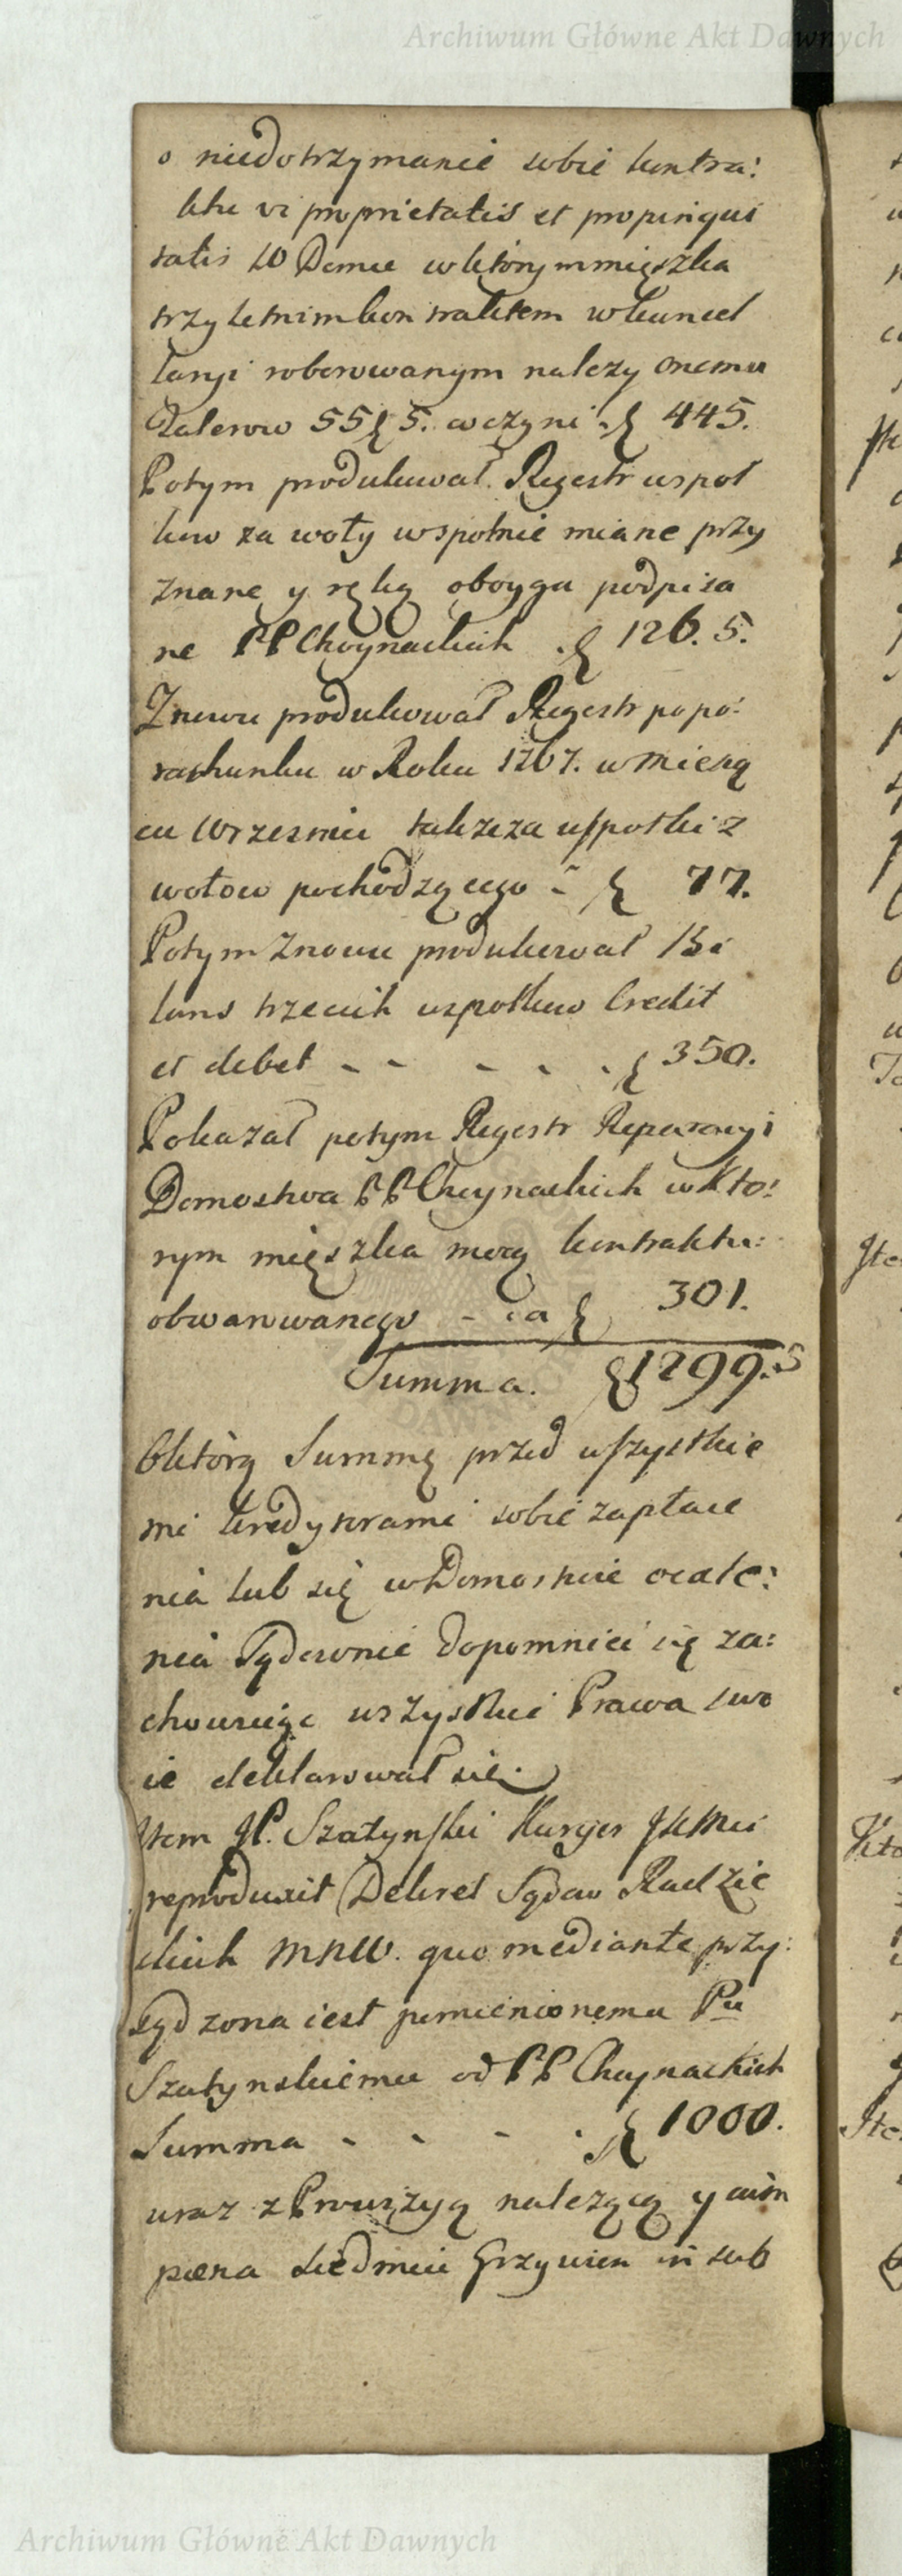 Archiwum Główne Akt Dawnych
o niedotrzymanie sobie kontra:
ktu vi proprietatis et propinqui
tatis w Domu w którym mięszka
trzyletnim kontraktem w kancel
laryi roborowanym należy onemu
Talerow 55 5. co czyni 445.
Potym produkował Regestr uspoł
kow za woły wspolnie miane przy
znane y ręką oboyga podpisa
ne PP Choynackich 126. 5.
Znowu produkował Regestr po po:
rachunku w Roku 1767. w miesią
cu Wrzesniu także za uspołki z
wołow pochodzącego - 77.
Potym Znowu produkował Bi
lans trzecich uspołkow Credit
et debet - - - - 350.
Pokazał potym Regestr Reparacyi
Domostwa PP Choynackich w Kto:
rym mięszka mocą kontraktu:
obwarowanego - 301.
Summa. 1299. 5
O którą Summę przed wszystkie
mi kredytorami sobie zapłace
nia lub się w Domostwie ocale:
nia Sądownie dopomnieć się za:
chowuiąc wszystkie Prawa swo
ie deklarował się.
Item JP. Szatynski Kuryer JKMci
reproduxit Dekret Sądow Radzie
ckich MNW. quo mediante przy:
sądzona iest pomienionemu Pu
Szatynskiemu od PP Choynackich
Summa - - - 1000.
uraz z Prowizyą należącą y
pæna siedmiu Grzywien in sub
Archiwum Główne Akt Dawnych